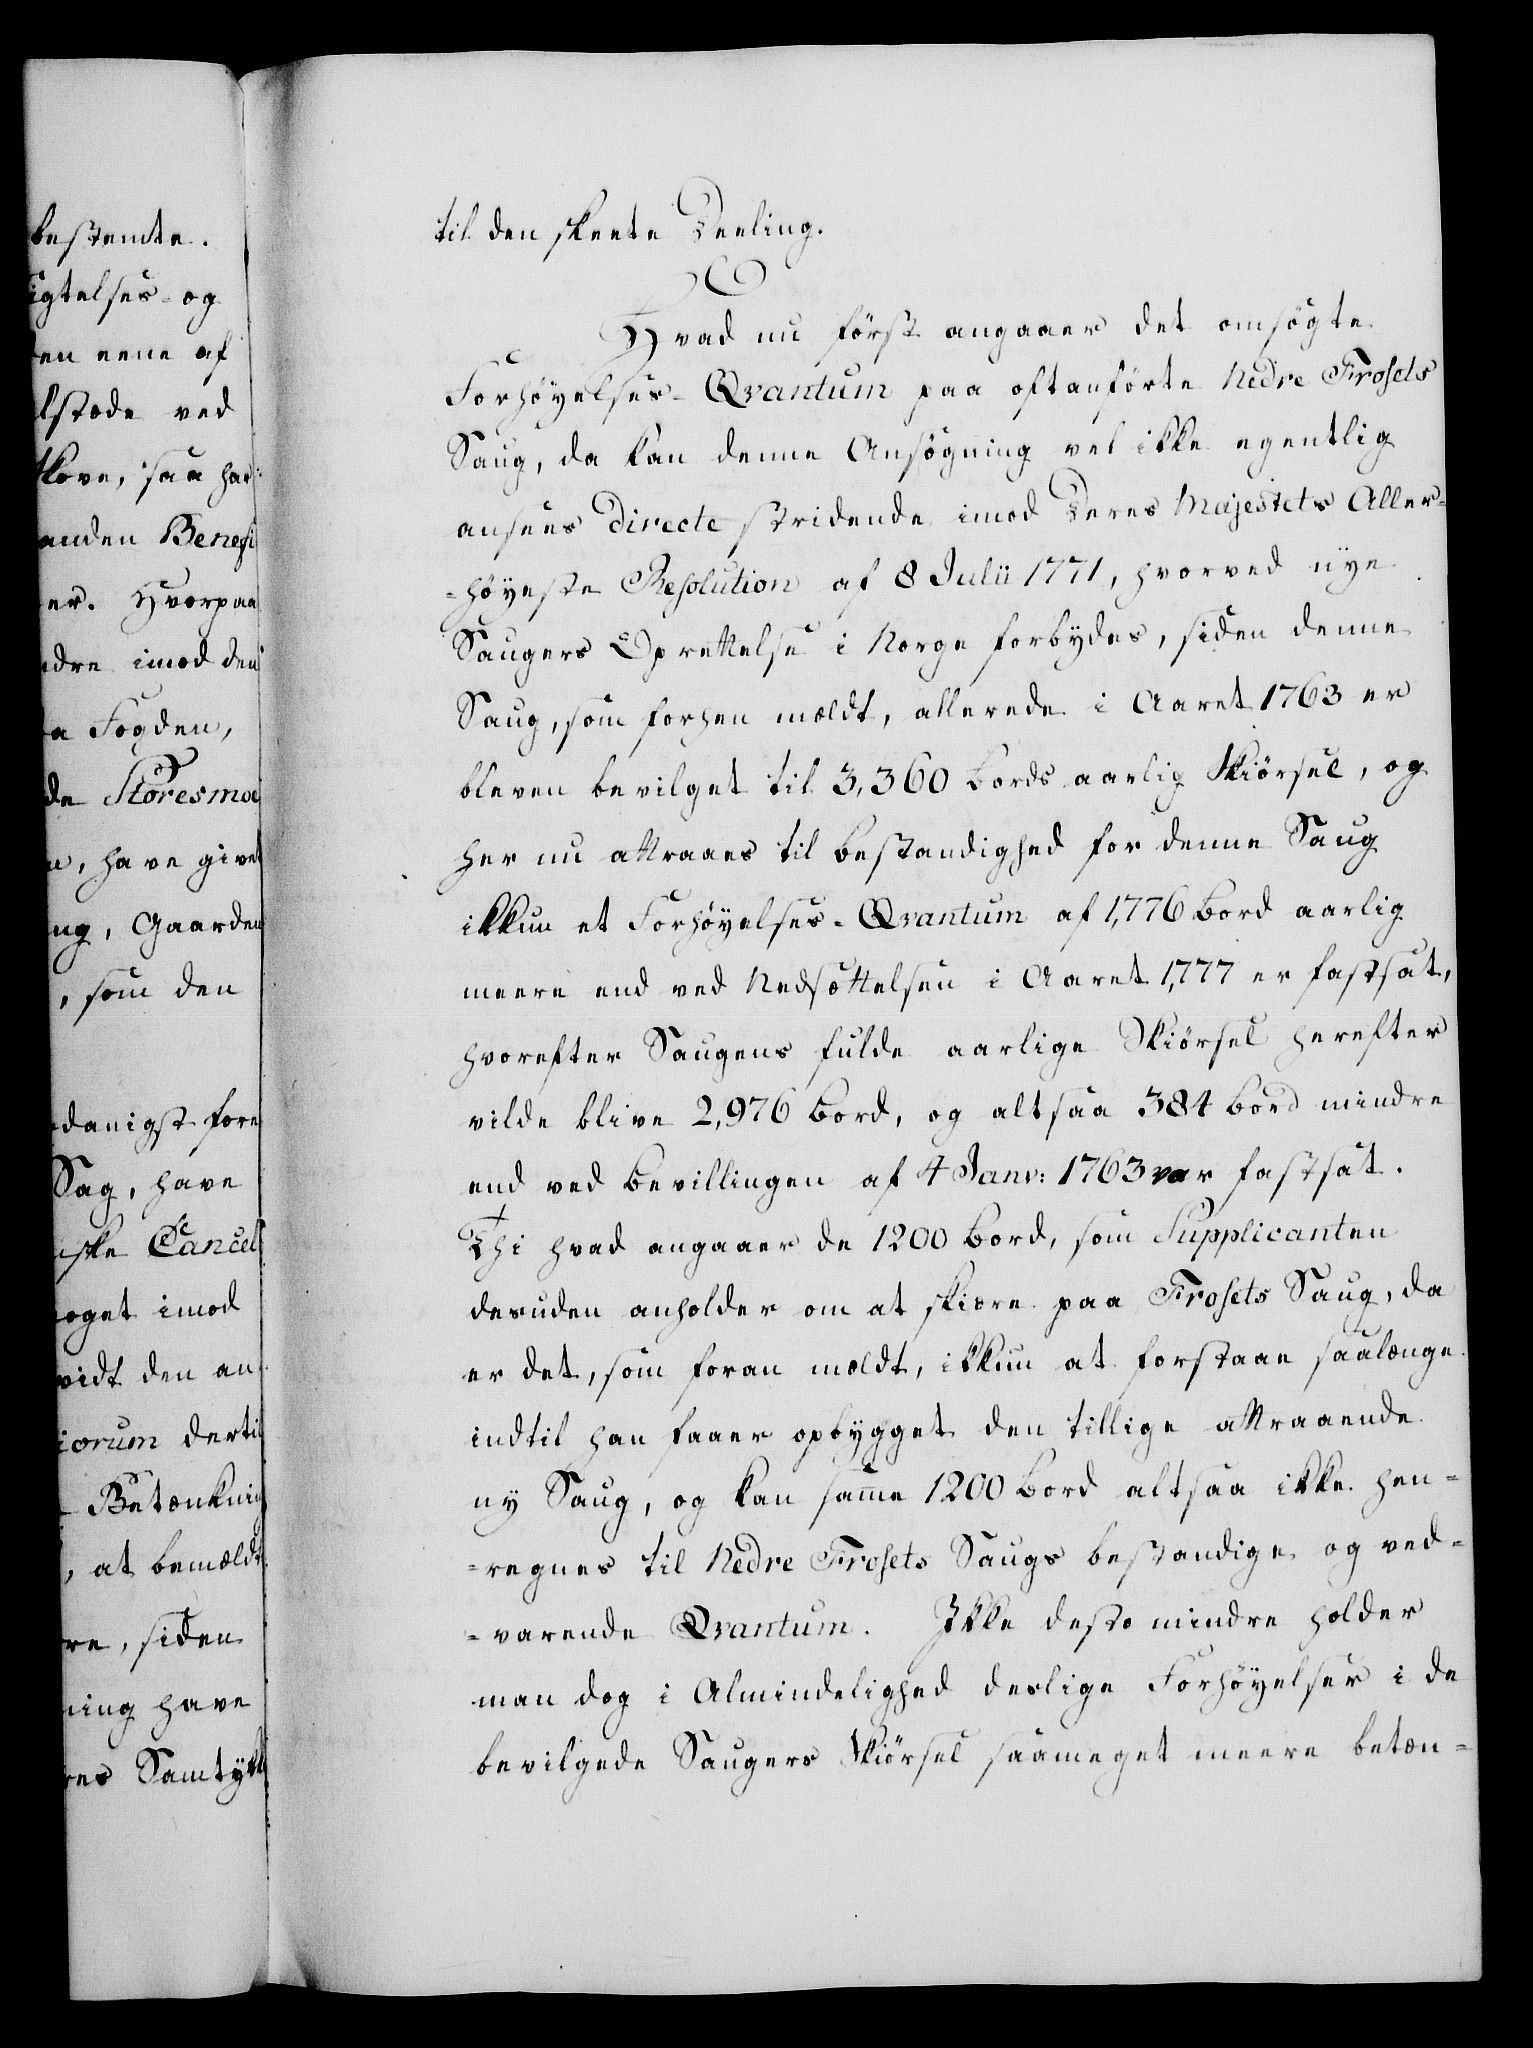 bestemte.
igtelses- og
en eene af
lstæde ved
kove, saa har
anden Benefi
er. Hvorpaa
dre imod den
a Fogden,
de Storesmoe
, have givet
ng, Gaarden
, som den
danigst fore
Sag, have
ske Cancel
oget imod
vidt den an
iorum dertil
Betænkning
, at bemældte
re, siden
ning have
res Samtykke
til den skeete Deeling.
Hvad nu först angaaer det omsögte
Forhöyelses-Qvantum paa oftanförte Nedre Frosets
Saug, da kan denne Ansögning vel ikke egentlig
ansees directe stridende imod Deres Majestets Aller-
-höyeste Resolution af 8 Julii 1771, hvorved nÿe
Saugers Oprettelse i Norge forbydes, siden denne
Saug, som forhen mældt, allerede i Aaret 1763 er
bleven bevilget til 3,360 Bords aarlig Skiörsel, og
her nu attraaes til bestandighed for denne Saug
ikkun et Forhöyelses-Qvantum af 1,776 Bord aarlig
meere end ved Nedsættelsen i Aaret 1,777 er fastsat,
hvorefter Saugens fulde aarlige Skiörsel herefter
vilde blive 2,976 Bord, og altsaa 384 Bord mindre
end ved Bevillingen af 4 Janv: 1763 var fastsat.
Thi hvad angaaer de 1200 Bord, som Supplicanten
desuden anholder om at skiære paa Frosets Saug, da
er det, som foran mældt, ikkun at forstaae saalænge
indtil han faaer opbygget den tillige attraaende
ny Saug, og kan samme 1200 Bord altsaa ikke hen-
-regnes til Nedre Frosets Saugs bestandige og ved-
-varende Qvantum. Ikke desto mindre holder
man dog i Almindelighed deslige Forhöyelser i de
bevilgede Saugers Skiörsel saameget meere betæn-